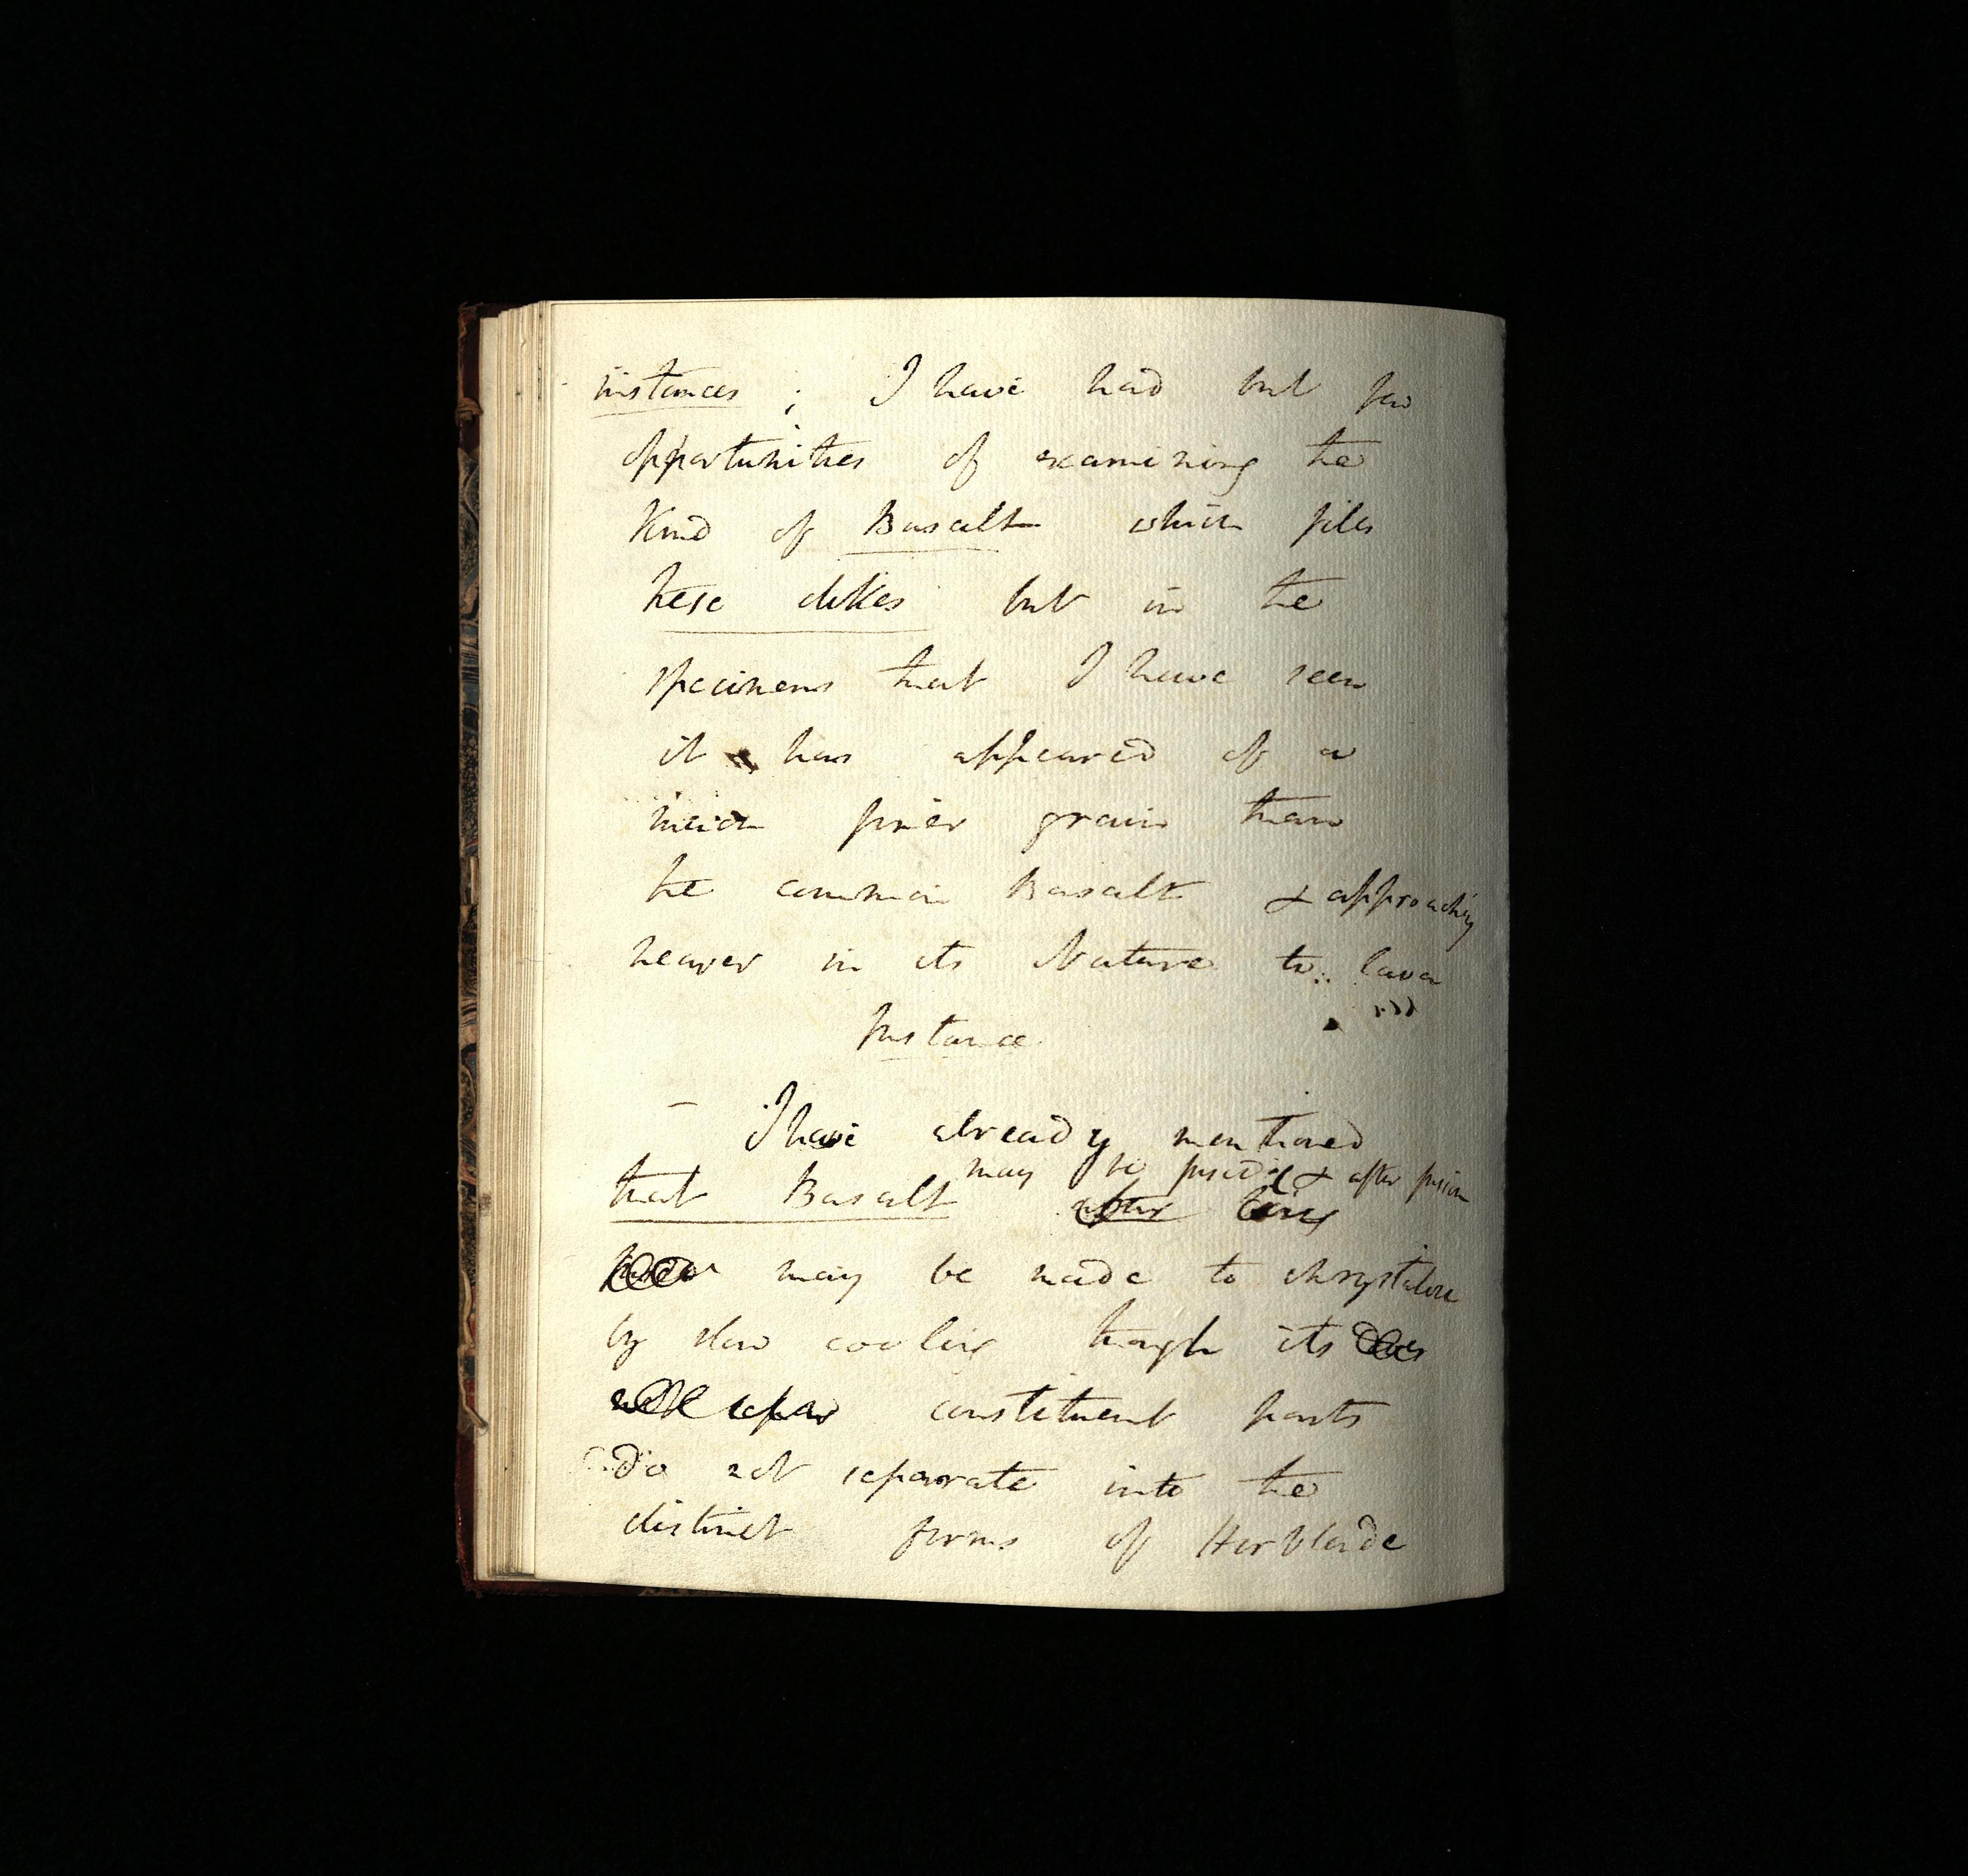 instances ; I have had but few
opportunities of examining the
Kind of Basalt which fills
these dikes but in the
specimens that I have seen
it has appeared of a
much finer grain than
the common Basalt & approaching
nearer in its Nature to lava
Instance
– I have already mentioned
may be fused & after fusion
that Basalt after being
may be made to chrystalize
by slow cooling though its
constituent parts
do not separate into the
distinct forms of Hornblende